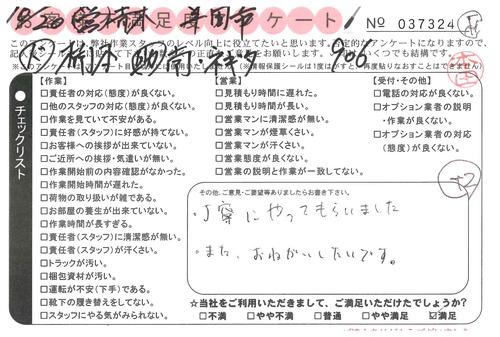 満足 アンケート
No 037324
【作業】
□責任者の対応(態度)が良くない。
□他のスタッフの対応(態度)が良くない。
□作業を見ていて不安がある。
□責任者(スタッフ)に好感が持てない。
□お客様への挨拶が出来ていない。
□ご近所への挨拶・気遣いが無い。
□作業開始前の内容確認がなかった。
□作業開始時間が遅れた。
□荷物の取り扱いが雑である。
□お部屋の養生が出来ていない。
□作業時間が長すぎる。
□責任者(スタッフ)に清潔感が無い。
□責任者(スタッフ)が汗くさい。
□トラックが汚い。
□梱包資材が汚い。
□運転が不安(下手)である。
□靴下の履き替えをしてない。
□スタッフにやる気がみられない。
【営業】
□見積もり時間に遅れた。
□見積もり時間が長い。
□営業マンに清潔感が無い。
□営業マンが煙草くさい。
□営業マンが汗くさい。
□営業態度が良くない。
□営業の説明と作業が一致してない。
【受付・その他】
□電話の対応が良くない。
□オプション業者の説明
・作業が良くない。
□オプション業者の対応
(態度)が良くない。
●チェックリスト
その他、ご意見・ご要望等ありましたらお書き下さい。
・丁寧にやってもらいました
・また、おねがいしたいです。
☆当社をご利用いただきまして、ご満足いただけたでしょうか?
□不満 □やや不満 □普通 □やや満足 ☑満足